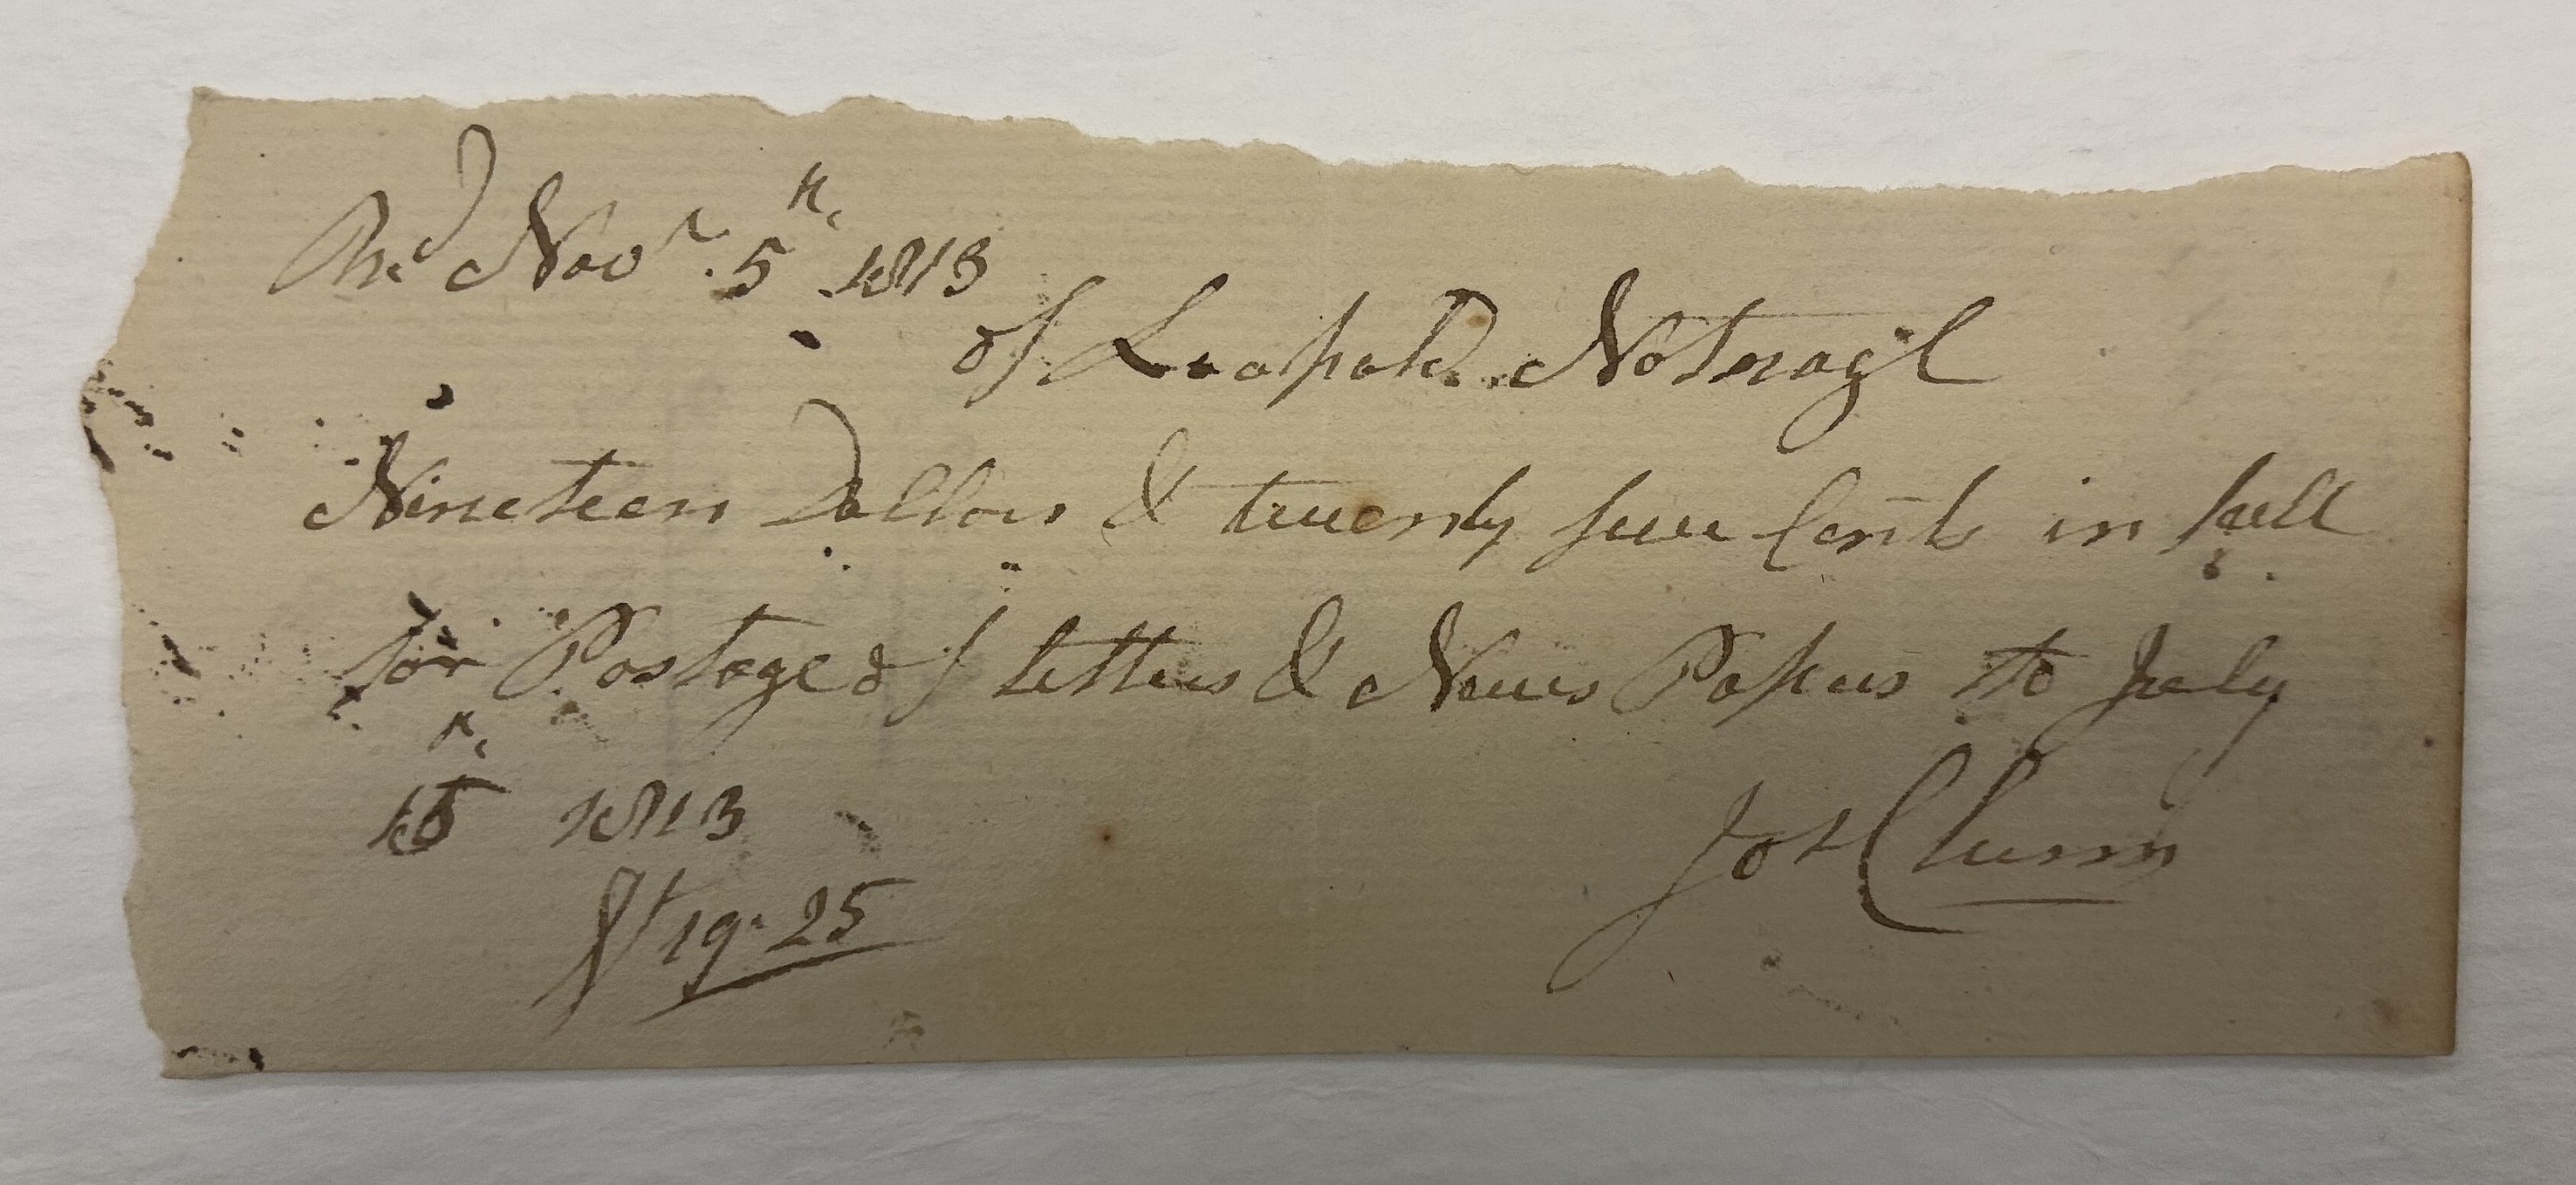 Rec.d Nov.r 5th. 1813
of Leopold Notnagil
Nineteen Dollars & twenty five Cents in full
for Postage of letters & News Papers to July
th.
15 1813
$19.25
Jos Clunn